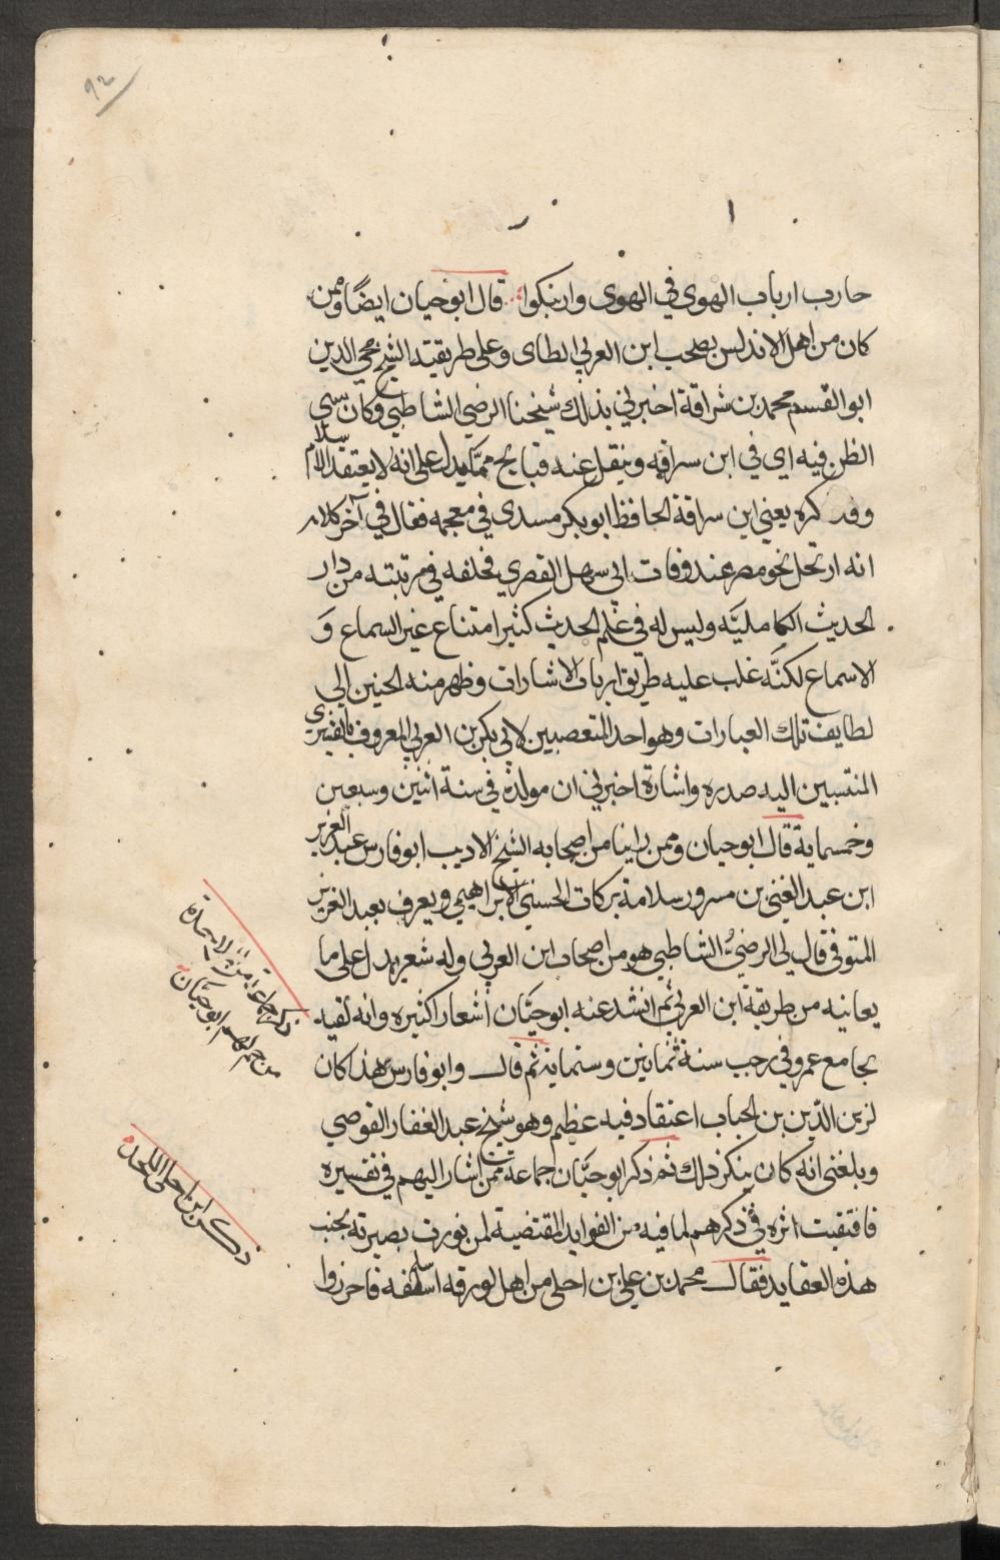 ٩٢
حارب ارباب الهوى في الهوى وارتبكوا قال ابو حيان ايضًا وممن
كان من اهل الاندلس يصحب ابن العربي الطاى وعلى طريقته الشيخ محي الدين
ابو القسم محمد بن شراقة اخبرني بذلك شيخنا الرضي الشاطبي وكان سي
الظن فيه اي في ابن سراقه وينقل عنه قبايح مما يدل على انه لا يعتقد الاسلام
وقد ذكره يعني ابن سراقة الحافظ ابو بكر مسدى في معجمه فقال في آخر كلامه
انه ارتحل نحو مصر عند وفات ابي سهل القصري فخلفه في مرتبته من دار
الحديث الكامليَّه وليس له في علم الحديث كثير امتناع غير السماع وَ
الاسماع لكنَّه غلب عليه طريق ارباب الاشارات وظهر منه الحنين الي
لطايف تلك العبارات وهو احد المتعصبين لابي بكر بن العربي المعروف بالقشيري
المنتسبين اليه صدره واشارة اخبرني ان مولده في سنة اثنين وسبعين
وخمسماية قال ابو حيان وممن راينا من اصحابه الشيخ الاديب ابو فارس عبد العزيز
ابن عبد الغني بن مسرور سلامة بركات الحسني الابراهيمي ويعرف بعبد العزيز
المتوفى قال لي الرضيُّ الشاطبي هو من اصحاب ابن العربي وله شعر يدل على ما
يعانيه من طريقة ابن العربي ثم انشد عنه ابو حيَّان أشعارا كثيره وانه لقيه
بجامع عمرو في رجب سنة ثمانين وستماية ثم قال وابو فارس هذا كان
لزين الدّين بن الحباب اعتقاد فيه عظيم وهو شيخ عبد الغفار القوصي
وبلغني انه كان ينكر ذلك ثم ذكر ابو حيَّان جماعة ممن اشار اليهم في تفسيره
فاقتفيت اثره في ذكرهم لما فيه من الفوايد المقتضية لمن نورت بصيرته تجنب
هذه العقايد فقال محمد بن علي بن احلى من اهل لورقه اسلمفه فاحرزوا
ذكر جماعة من الملاحدة
من جراهم ابو حيَّان
ذكر ابن احلا الملحد